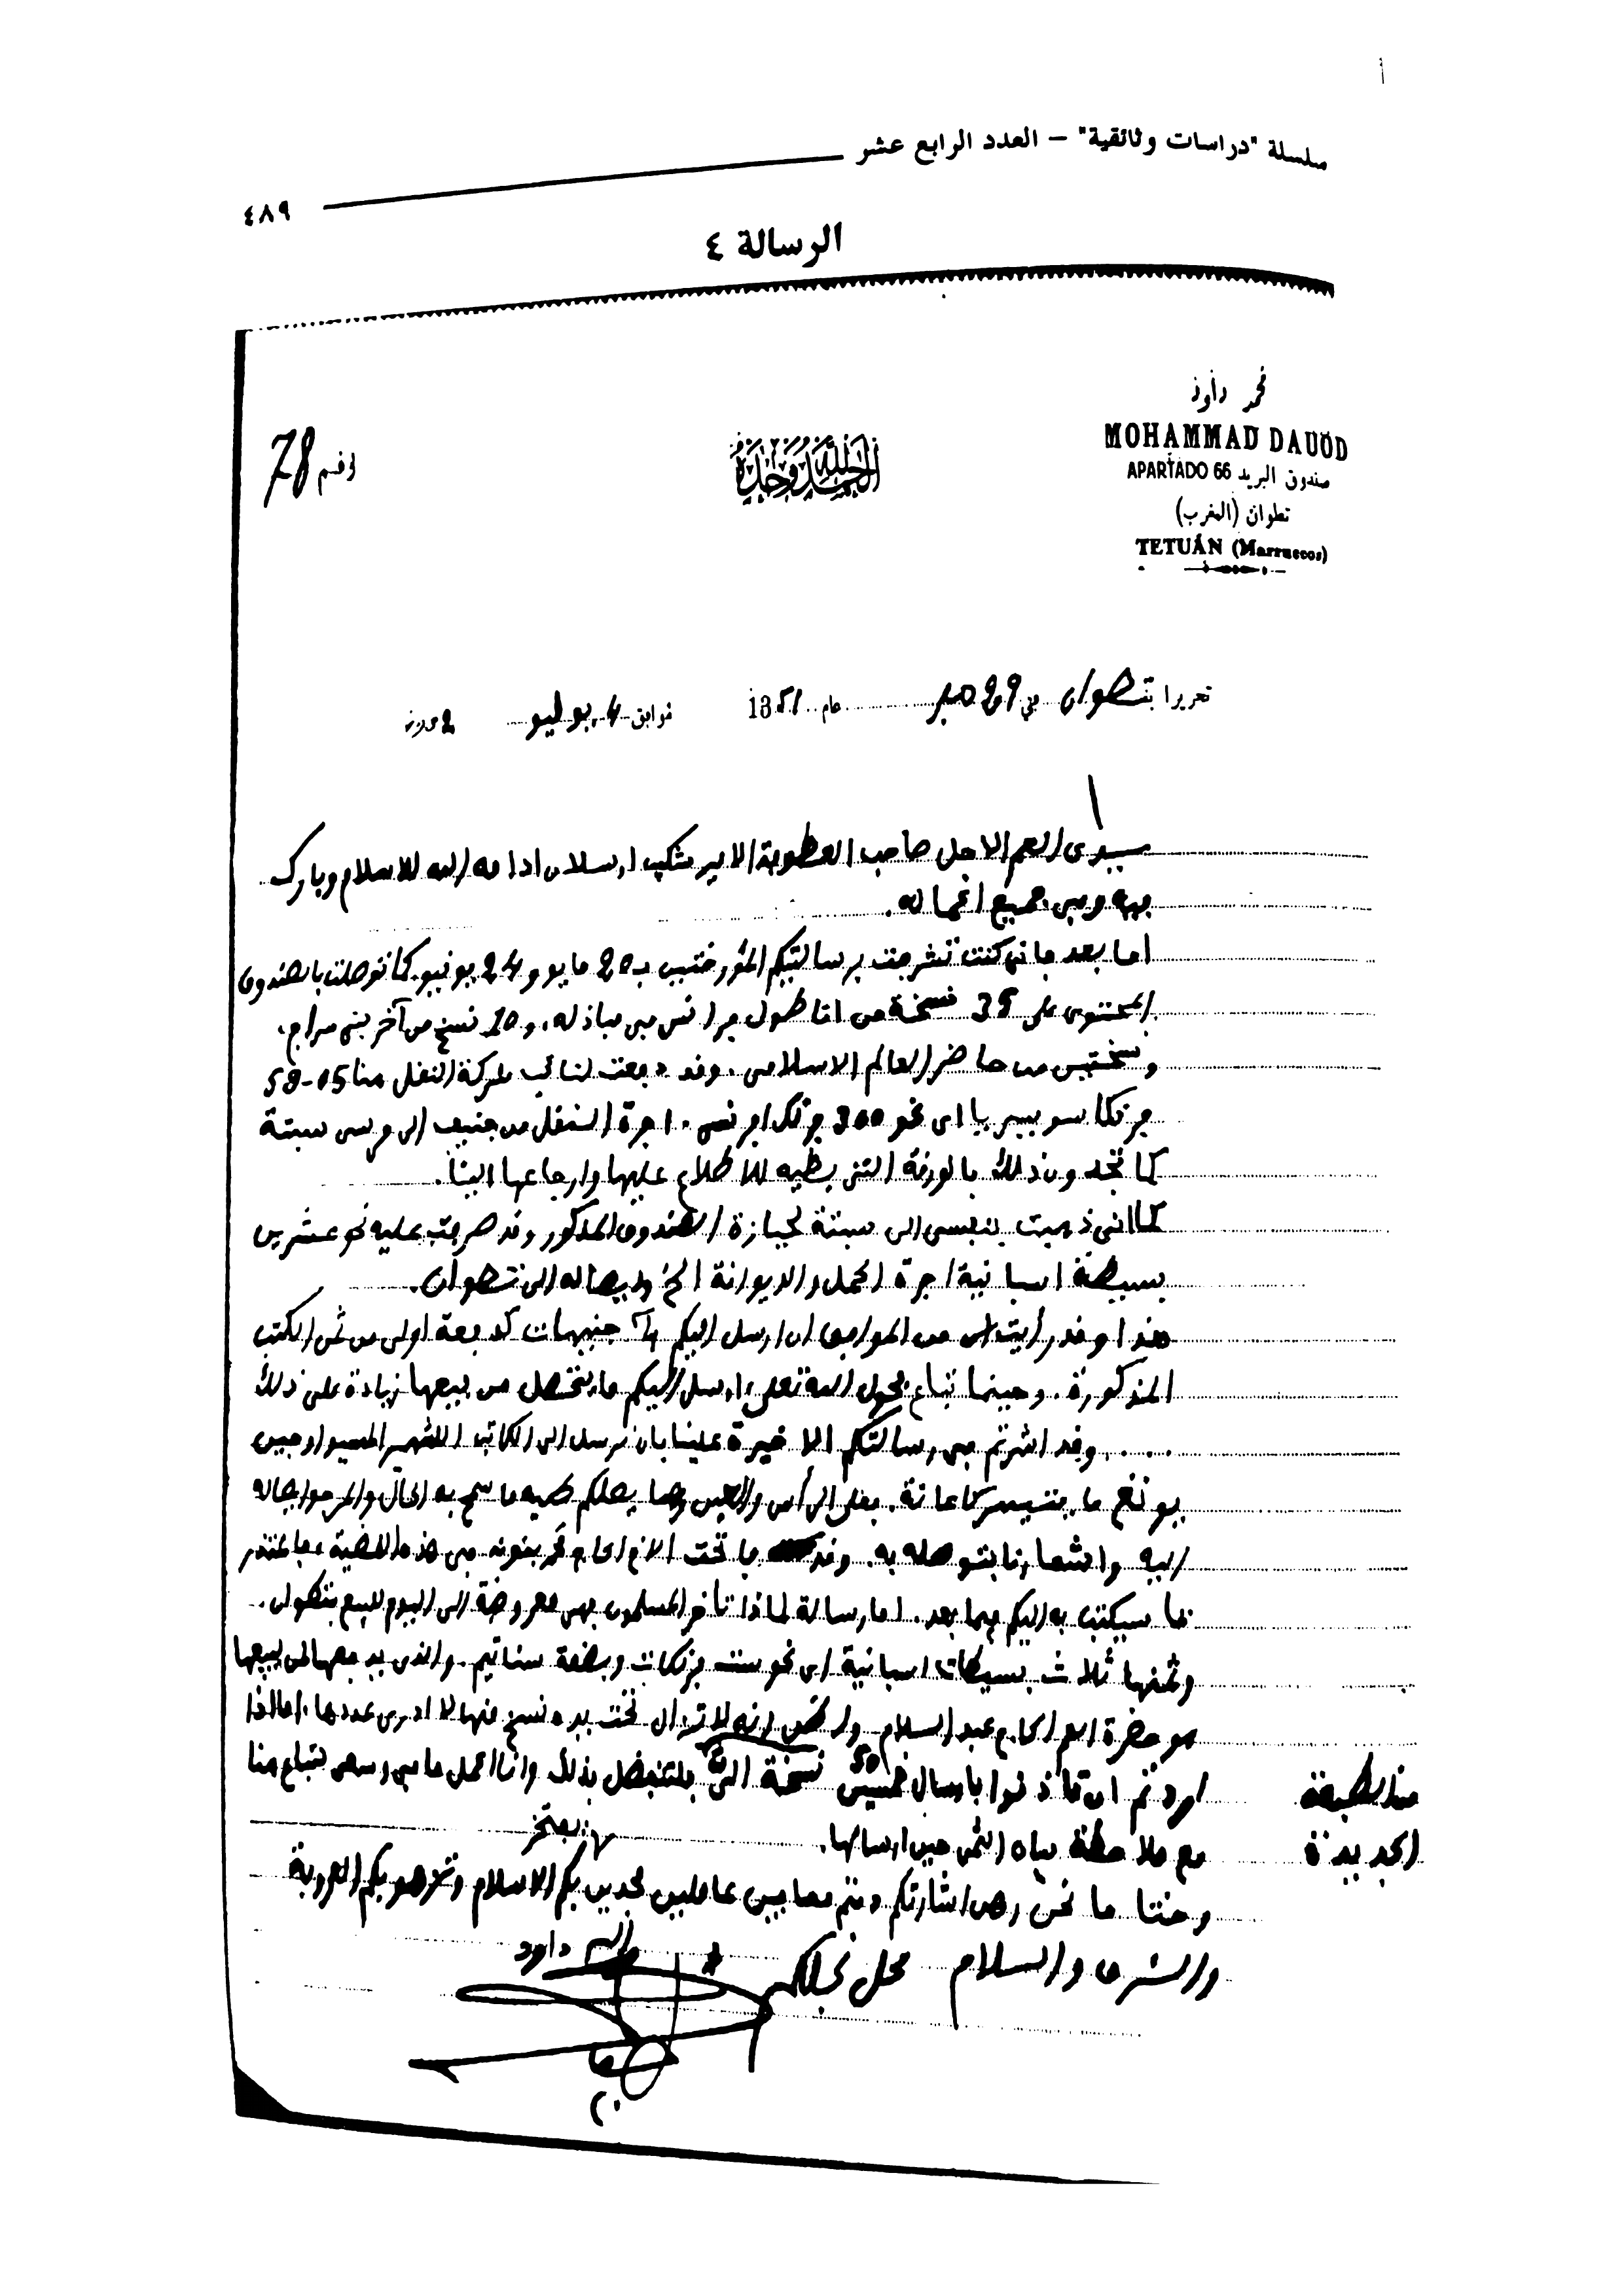 سلسلة "دراسات وثائقية" – العدد الرابع عشر
٤٨٩
الرسالة ٤
محمد داود
MOHAMMAD DAUOD
APARTADO 66 صندوق البريد
تطوان (المغرب)
TETUÁN (Marruecos)
الحمد لله وحده
رقم 78
تحريرا بتطوان في 29 صفر عام 1351 موافق 4 يوليو
سيدى العم الاجل صاحب العطوفة الامير شكيب ارسلان ادامه الله للاسلام وبارك
فيه وفي جميع اعماله.
اما بعد فانى كنت تشرفت برسالتيكم المؤرختين ب 20 مايو و 24 يونيو. كما توصلت بالصندوق
المحتوى على 35 نسخة من اناطول فرانس في مباذله، و 10 نسخ من آخر بنى سراج،
ونسختين من حاضر العالم الاسلامى. وقد دفعت لنائب شركة النقل هنا 05-58
فرنكا سويسريا اى نحو 300 فرنك افرنسى. اجرة النقل من جنيف الى مرسى سبتة
كما تجدون ذلك بالورقة التى بطيه للاطلاع عليها وارجاعها الينا.
كما انى ذهبت بنفسى الى سبتة لحيازة الصندوق المذكور وقد صرفت عليه نحو عشرين
بسيطة اسبانية اجرة الحمل والديوانة الخ وايصاله الى تطوان.
هذا وقد رأيت ان من الموافق ان ارسل اليكم 4 جنيهات كدفعة اولى من ثمن الكتب
المذكورة. وحينما تباع بحول الله تعلى ارسل اليكم ما يتحصل من بيعها زيادة على ذلك
.... وقد اشرتم في رسالتكم الاخيرة علينا بان نرسل الى الكاتب الشهير المسيو اوجين
يونغ ما يتيسر كاعانة. فعلى الرأس والعين وها يصلكم طيه ما سمح به الحال والمرجو ايصاله
اليه واشعارنا بتوصله به. وقد فاتحت الاخ الحاج محمد بنونه في هذه القضية، فاعتذر
بما سيكتب به اليكم فيما بعد. اما رسالة لماذا تأخر المسلمون فهى معروضة الى اليوم للبيع بتطوان.
وثمنها ثلاث بسيطات اسبانية اى نحو ست فرنكات وبضعة سناتيم. والذى يدفعها لمن يبيعها
هو حضرة العم الحاج عبد السلام. واظن انه لا تزال تحت يده نسخ منها لا ادرى عددها. اما اذا
اردتم ان تاذنوا بارسال خمسين 50 نسخة الىّ فلتتفضل بذلك وانا اعمل ما في وسعى لتباع هنا
من الطبعة
الجديدة
مع ملاحظة بيان الثمن حين ارسالها.
وختاما نحن رهن اشارتكم دمتم معافين عاملين لمجد يفتخر بكم الاسلام وتزهو بكم العروبة
والشرق والسلام
داود